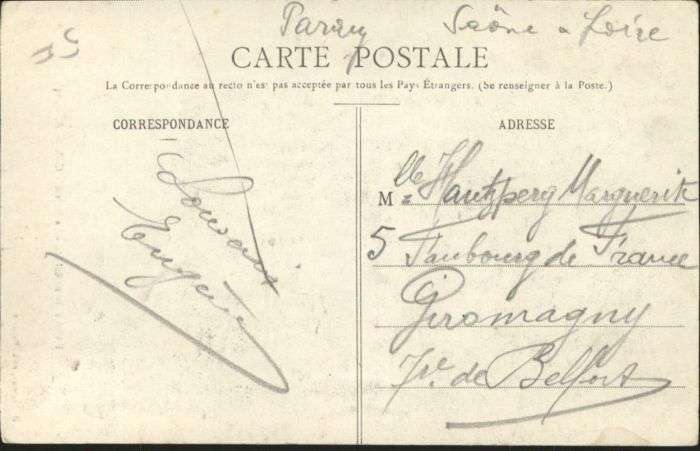 Paray Saône & Loire
CARTE POSTALE
La Correspondance au recto n'est pas acceptée par tous les Pays Étrangers. (Se renseigner à la Poste.)
CORRESPONDANCE
Souvenir
Eugène
ADRESSE
Mlle Hantzperg Marguerite
5 Faubourg de France
Giromagny
Tre de Belfort